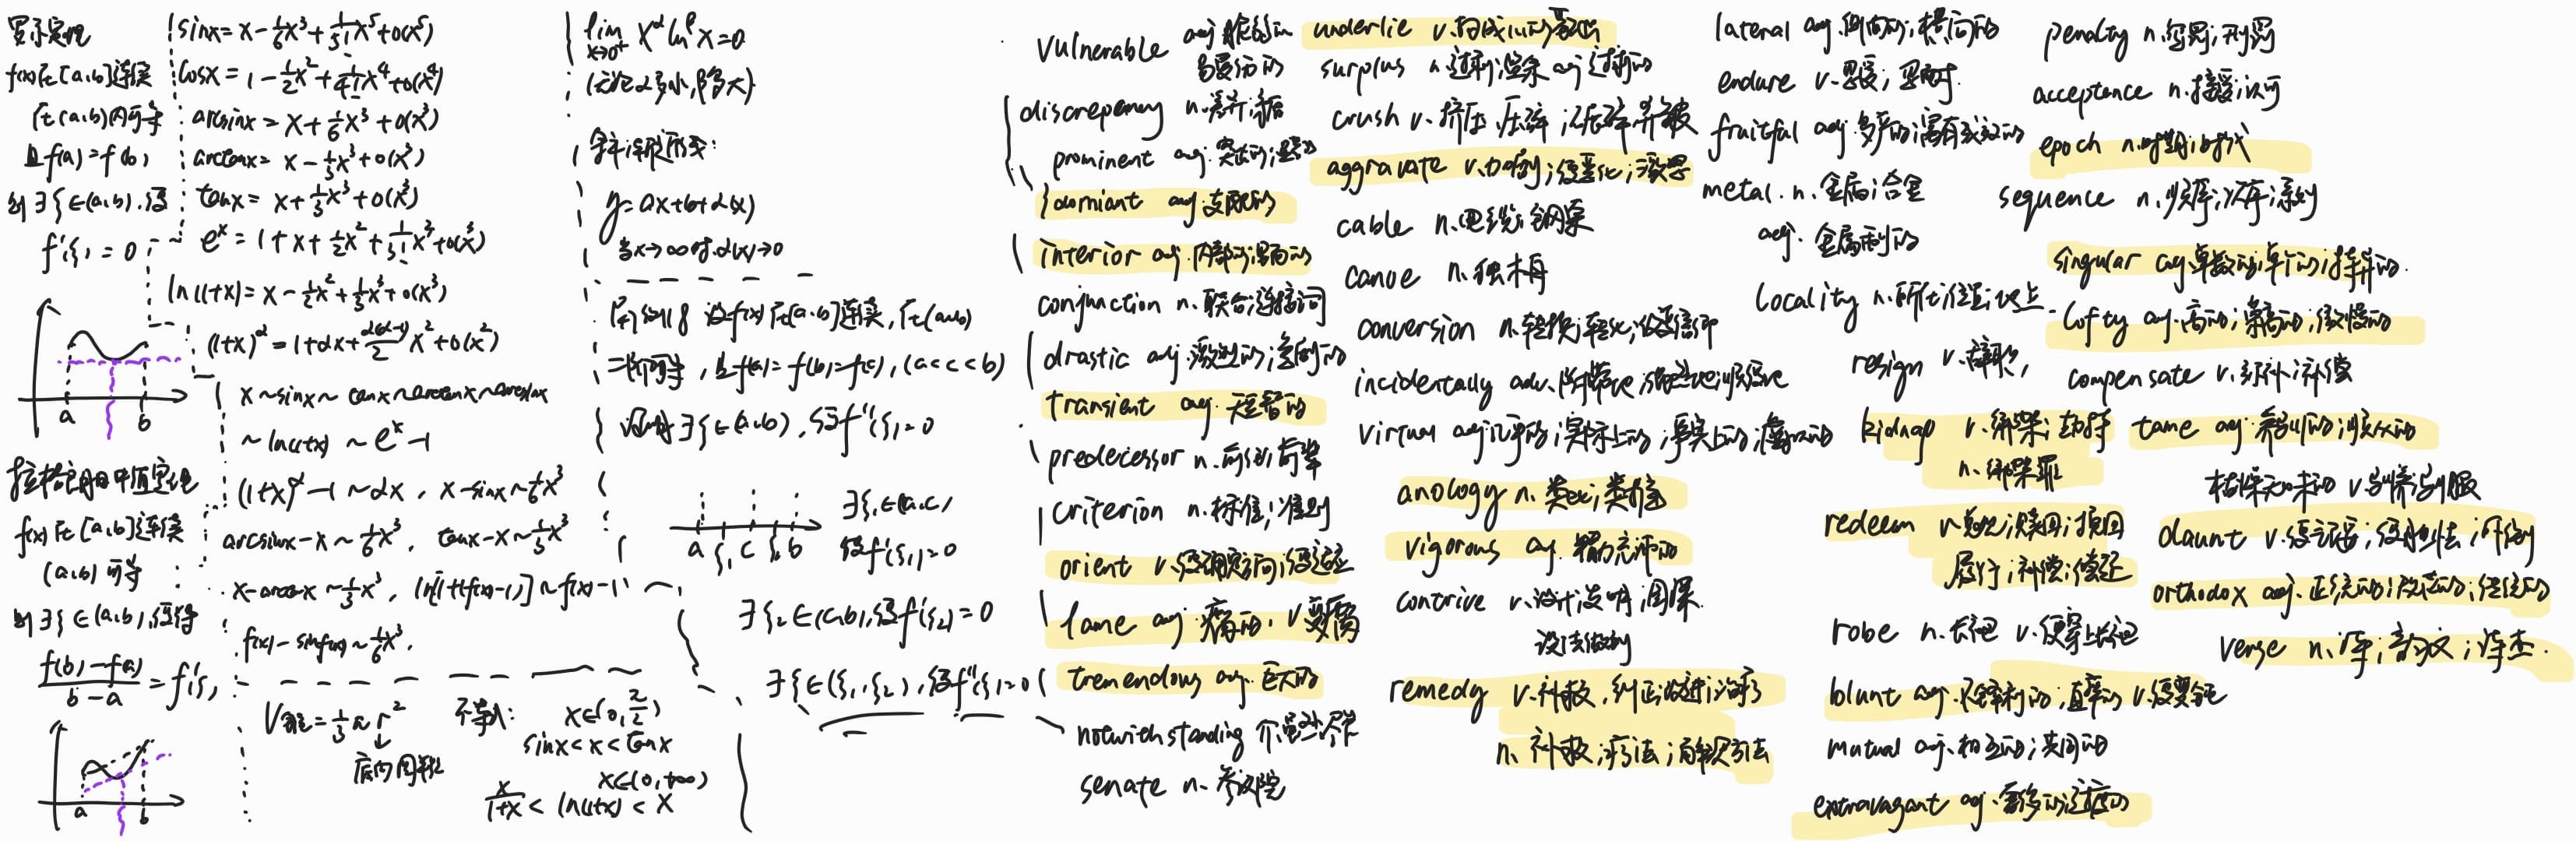 罗尔定理
f(x)在[a,b]连续
在(a,b)内可导
且f(a)=f(b),
则∃ξ∈(a,b).使
f'(ξ)=0
a b
拉格朗日中值定理
f(x)在[a,b]连续
(a,b)可导
则∃ξ∈(a,b),使得
f(b)-f(a)/b-a=f'(ξ)
a b
sinx=x-1/6x³+1/5!x⁵+o(x⁵)
cosx=1-1/2x²+1/4!x⁴+o(x⁴)
arcsinx=x+1/6x³+o(x³)
arctanx=x-1/3x³+o(x³)
tanx=x+1/3x³+o(x³)
eˣ=1+x+1/2x²+1/3!x³+o(x³)
ln(1+x)=x-1/2x²+1/3x³+o(x³)
(1+x)^α=1+αx+α(α-1)/2x²+o(x²)
x~sinx~tanx~arctanx~arcsinx
~ln(1+x)~eˣ-1
(1+x)^α-1~αx, x-sinx~1/6x³
arcsinx-x~1/6x³, tanx-x~1/3x³
x-arctanx~1/3x³, ln[1+(f(x)-1)]~f(x)-1
f(x)-sinf(x)~1/6x³.
=1/3πr²
不等式: x∈(0,π/2)
sinx<x<tanx
x∈(0,+∞)
x/1+x<ln(1+x)<x
lim x→0⁺ x^α ln^β x=0
(无论α多小,β多大)
斜渐近线:
y=ax+b+α(x)
当x→∞时.α(x)→0
设f(x)在[a,b]连续,在(a,b)
二阶可导,且f(a)=f(b)=f(c),(a<c<b)
证明∃ξ∈(a,b),使f''(ξ)=0
a ξ₁ c ξ₂ b
∃ξ₁∈(a,c)
使f'(ξ₁)=0
∃ξ₂∈(c,b),使f'(ξ₂)=0
∃ξ∈(ξ₁,ξ₂),使f''(ξ)=0
vulnerable adj.脆弱的
易受伤的
discrepency n.差异;矛盾
prominent adj.突出的;显著的
domiant adj.支配的
interior adj.内部的;里面的
conjunction n.联合;连接词
drastic adj.激烈的;急剧的
transient adj.短暂的
predecessor n.前任;前辈
criterion n.标准;准则
orient v.使确定方向;使适应
lame adj.瘸的. v.变瘸
tremendous adj.巨大的
notwithstanding 介.虽然;尽管
senate n.参议院
underlie v.构成……的基础
surplus n.过剩;盈余 adj.过剩的
crush v.挤压,压碎
aggravate v.加剧;使恶化;激怒
cable n.电缆;钢索
canoe n.独木舟
conversion n.转换;转化;改变信仰
incidentally adv.附带地;偶然地;顺便地
virtual adj.几乎的;实际上的;事实上的;虚拟的
anology n.类比;类推
vigorous adj.精力充沛的
contrive v.设计;发明;图谋
设法做到
remedy v.补救,纠正;改进;治疗
n.补救;疗法;解决方法
lateral adj.侧面的;横向的
endure v.忍受;忍耐
fruitful adj.多产的;富有成效的
metal.n.金属;合金
adj.金属制的
locality n.所在;位置;地点
resign v.辞职
kidnap v.绑架;劫持
n.绑架罪
redeem v.兑现;赎回;挽回
履行;补偿;偿还
robe n.长袍 v.使穿上长袍
blunt adj.不锋利的;直率的 v.使变钝
mutual adj.相互的;共同的
extravagant adj.奢侈的;过度的
penalty n.惩罚;刑罚
acceptance n.接受;认可
epoch n.时期;时代
sequence n.顺序;次序;系列
singular adj.单数的;单个的;非凡的
lofty adj.高的;崇高的;傲慢的
compensate v.弥补;补偿
tame adj.驯服的;顺从的
枯燥无味的 v.驯养;驯服
daunt v.使气馁;使胆怯;吓倒
orthodox adj.正统的;传统的
verse n.诗;韵文;诗奎